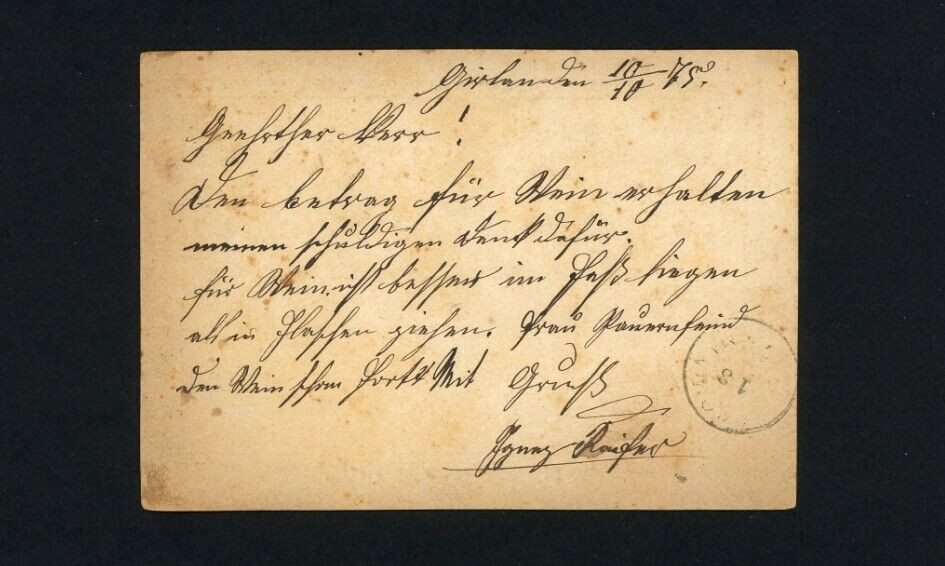 Girlan den 10/10 75.
Geehrther Herr!
Den betrag für Wein erhalten
meinen schuldigen Dank dafür.
für Wein ist besser im Faß liegen
als in Flaschen ziehen. Frau Pauernfeind
den Wein schon fortt Mit Gruß
Ignaz Kaifer
13